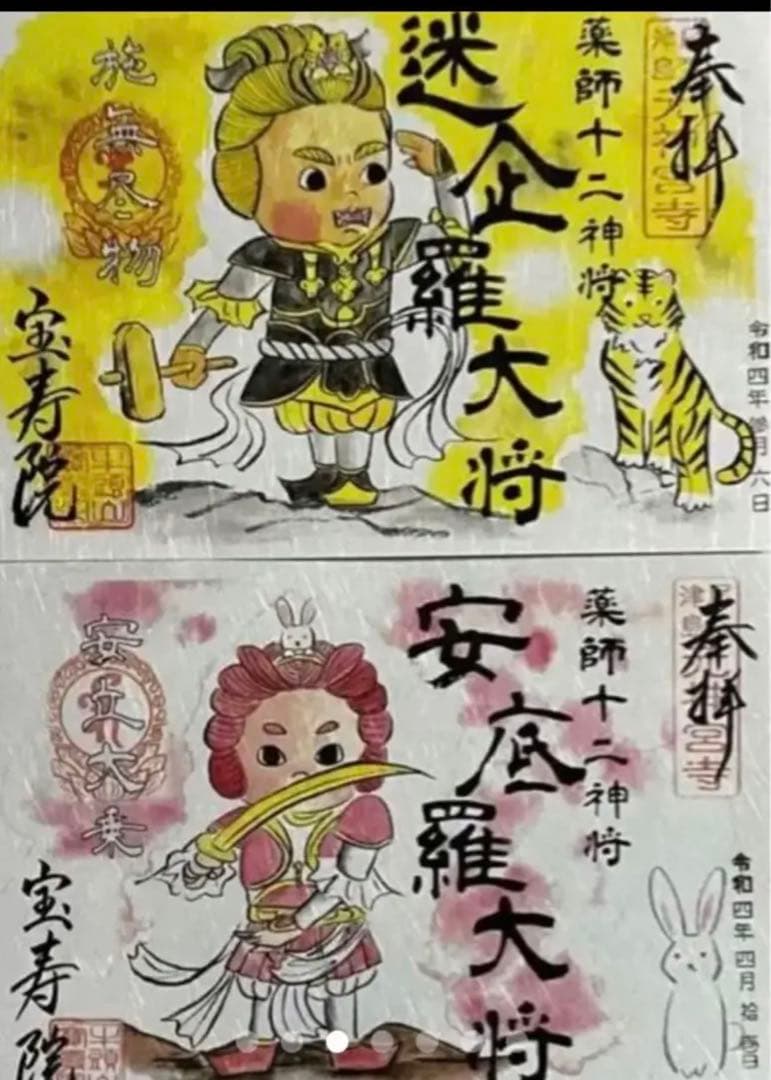 奉拝
令和四年 参月 六日
薬師十二神将
迷企羅大将
施無尽物
宝寿院
奉拝
令和四年 四月
薬師十二神将
安底羅大将
安立大乗
宝寿院